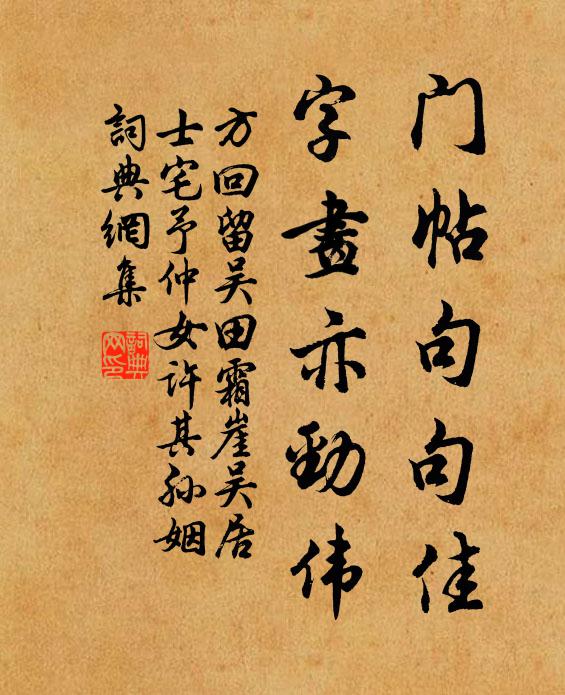 门帖句句佳
字畫亦勁伟
方回留吴田霜崖吴居
士宅予仲女许其孙姻
詞典網集
詞典网印